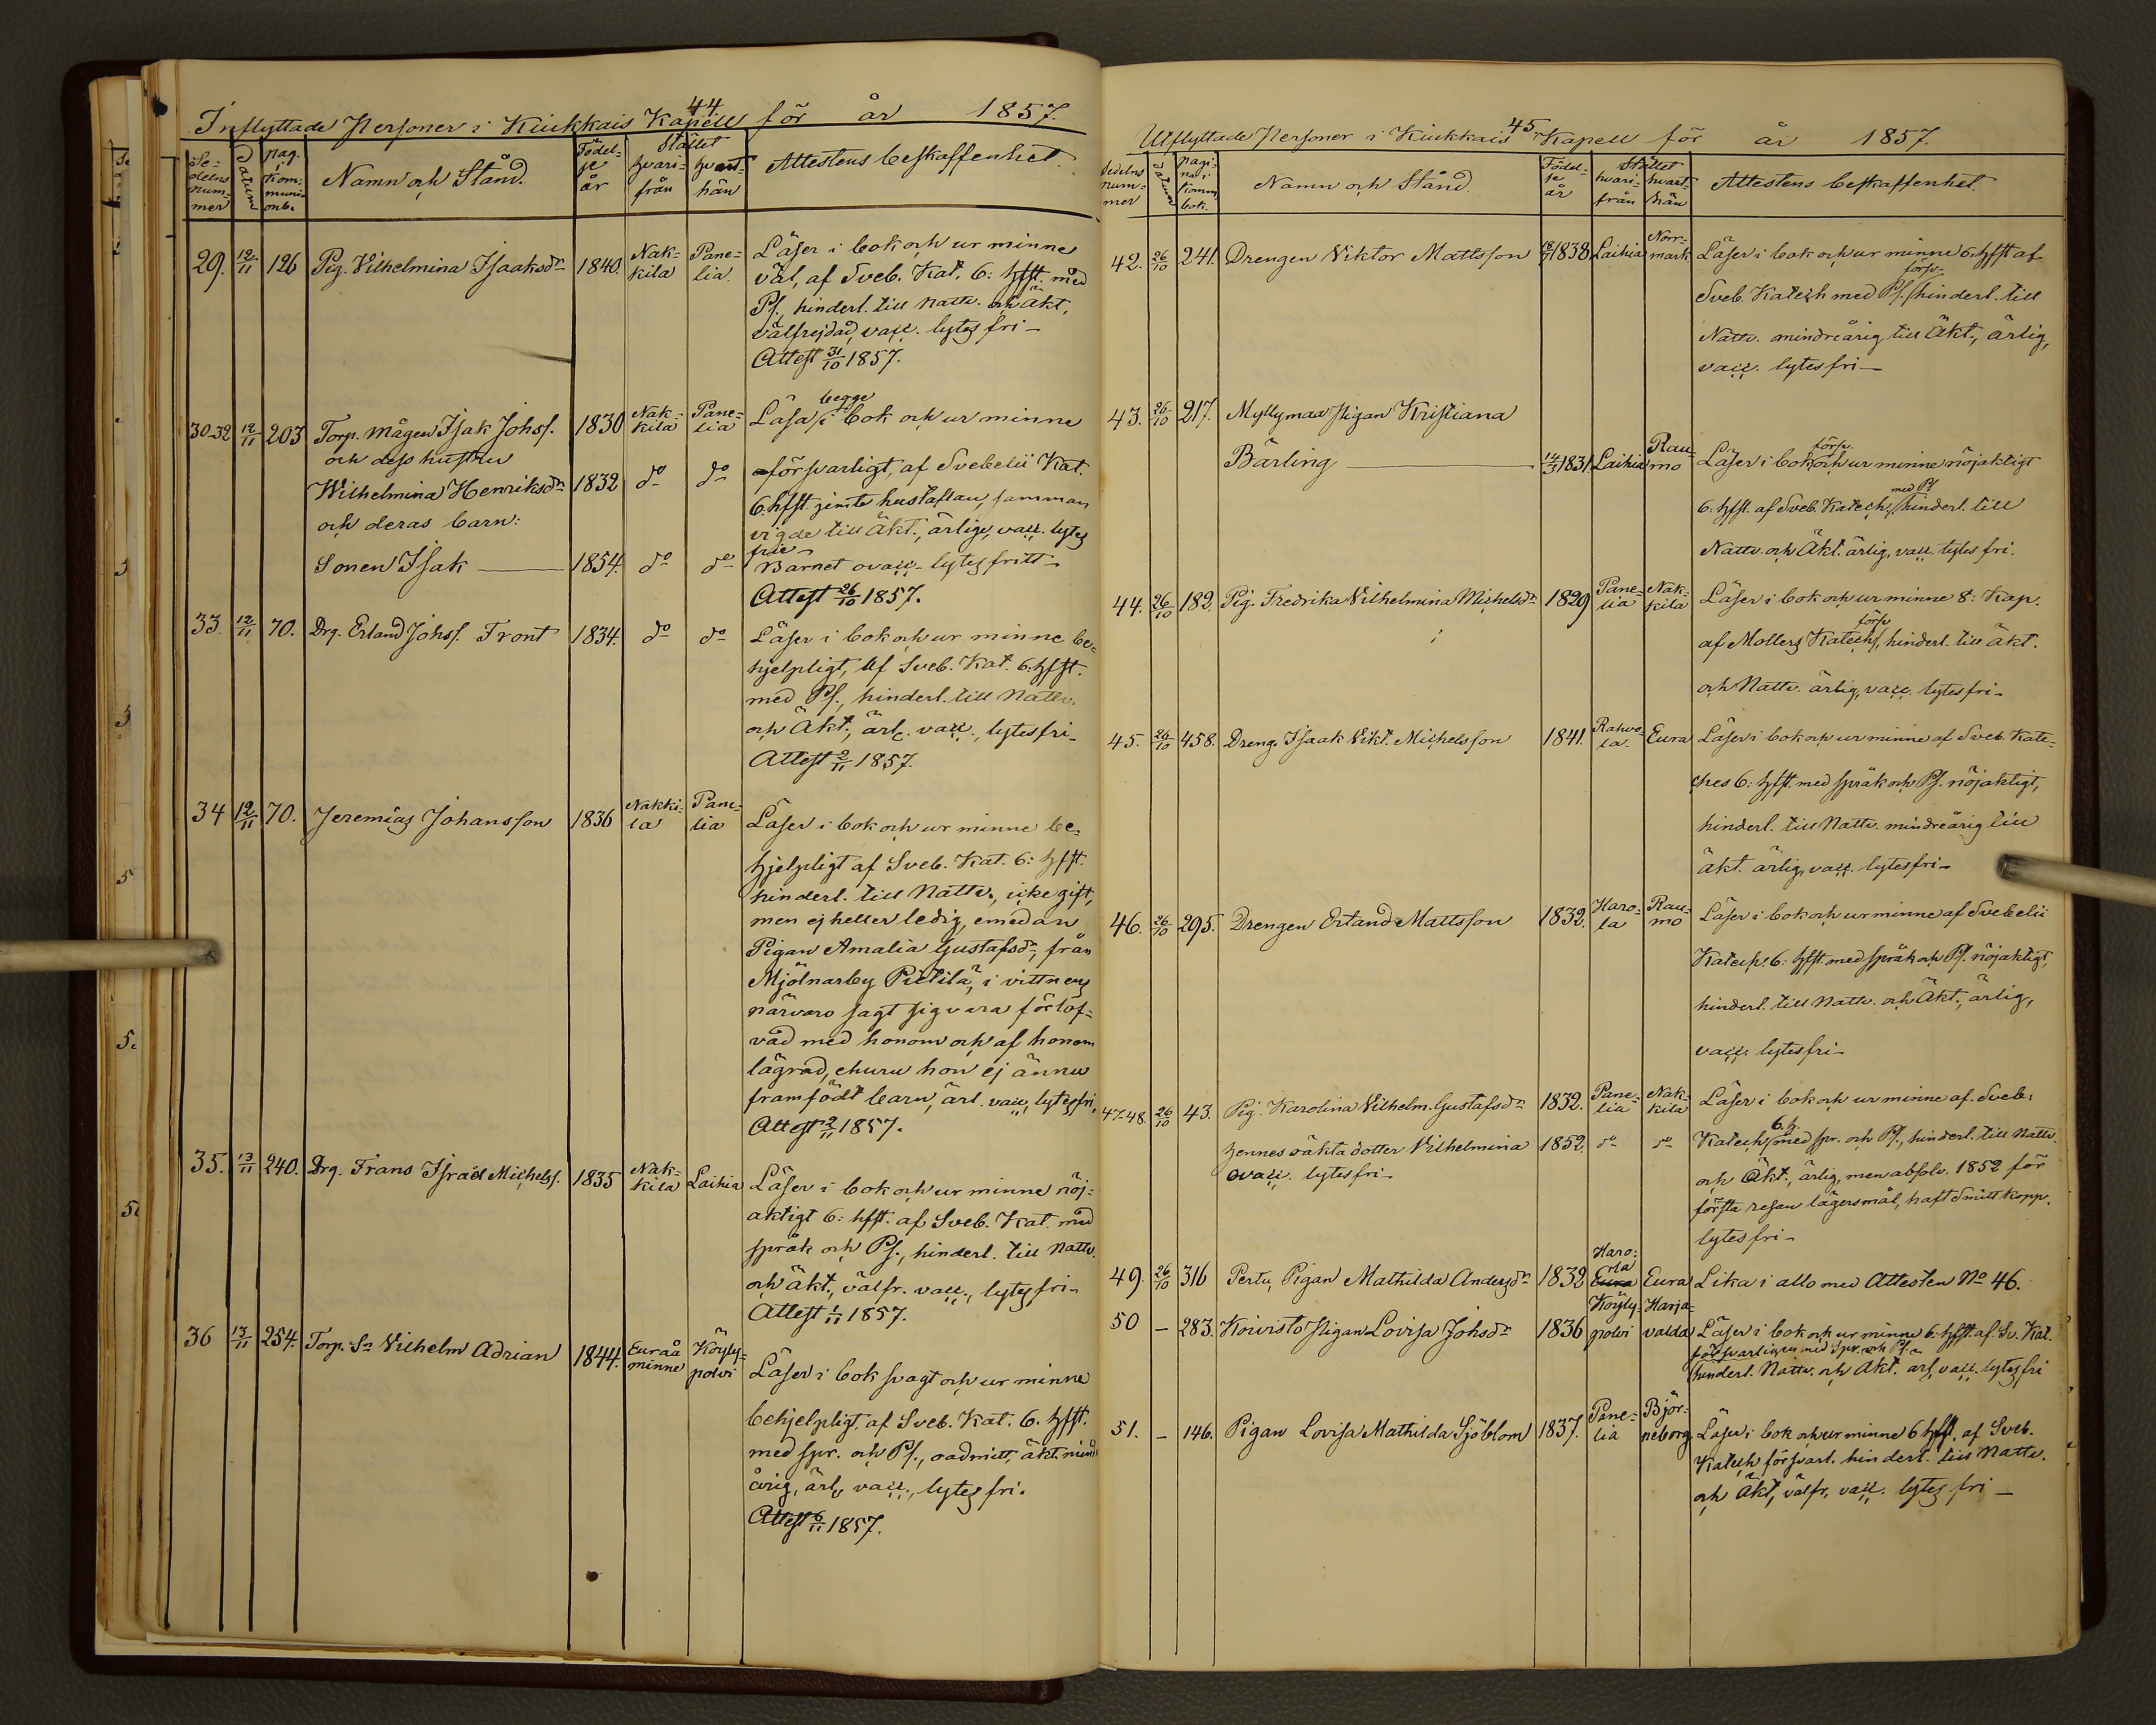 44
Inflyttade Personer i Kiukkais Kapell för år 1857.
Se-
delns
num-
mer
Datum
Pag.
i
Kom-
muni-
onb.
Namn och Stånd.
Födel-
se
år
Stället
hvari-
från
hvart-
hän
Attestens beskaffenhet.
29. 12/11 126 Pig. Vilhelmina Isaaksdr 1840. Nak-
kila
Pane-
lia.
Läser i bok och ur minne
väl, af Sveb. Kat. 6: hfst. med
Ps., hinderl. till Nattv. och äkt,
välfrejdad, vacc. lytes fri-
Attest 31/10 1857.
30-32 12/11 203 Torp. mågen Isak Johss. 1830 Nak-
kila
Pane-
lia
begge
Läsa i bok och ur minne
och dess hustru
Wilhelmina Henriksdr 1832 do do
försvarligt, af Svebelii Kat.
6. hfst. jemte hustaflan, samman
och deras barn:
vigde till äkt., ärlige, vacc. lytes
frie-
Sonen Isak — 1854. do do Barnet ovacc- lytes fritt-
Attest 26/10 1857.
33. 12/11 70. Drg. Erland Johss. Front 1834. do do Läser i bok och ur minne be-
hjelpligt, af Sveb. Kat. 6. hfst.
med Ps., hinderl. till Nattv.
och Äkt., ärl. vacc., lytes fri-
Attest 2/11 1857.
34 12/11 70. Jeremias Johansson 1836 Nakki-
la
Pane-
lia
Läser i bok och ur minne be-
hjelpligt af Sveb. Kat. 6: hfst.
hinderl. till Nattv., icke gift,
men ej heller ledig, emedan
Pigan Amalia Gustafsdr, från
Mjölnarby Pietilä, i vittnens
närvaro sagt sig vara förlof-
vad med honom och af honom
lägrad, ehuru hon ej ännu
framfödt barn, ärl. vacc, lytes fri.
Attest 2/11 1857.
35. 13/11 240. Drg. Frans Israel Michelss. 1835 Nak-
kila
Laihia
Läser i bok och ur minne nöj-
aktigt 6: hfst. af Sveb. Kat. med
språk och Ps., hinderl. till Nattv.
och äkt., välfr. vacc., lytes fri-
Attest 1/11 1857.
36 13/11 254. Torp. Sn Vilhelm Adrian 1844. Euraå
minne
Köyly-
polvi
Läser i bok svagt och ur minne
behjelpligt, af Sveb. Kat. 6. hfst.
med spr. och Ps., oadmitt, äkt. mind
årig, ärl, vacc., lytes fri.
Attest 6/11 1857.
45
Utflyttade Personer i Kiukkais Kapell för år 1857.
Sedelns
num-
mer
Datum
Pagi-
na i
Komm.
bok.
Namn och Stånd.
Födel-
se
år
Stället
hvari-
från
hvart-
hän
Attestens beskaffenhet.
42. 26/10 241. Drengen Viktor Mattsson 1838 Laihia Norr-
mark
Läser i bok och ur minne 6. hfst af
försv-
Sveb. Katech med Ps. hinderl. till
Nattv. mindreårig till Äkt., ärlig,
vacc. lytes fri-
43. 26/10 217. Myllymaa Pigan Kristiana
Bärling — 1831. Laihia Rau-
mo
försv.
Läser i bok och ur minne nöjaktigt
med Ps
6. hfst. af Sveb. Katech., hinderl. till
Nattv. och Äkt. ärlig, vacc. lytes fri.
44. 26/10 182. Pig. Fredrika Vilhelmina Michelsdr 1829 Pane-
lia
Nak-
kila
Läser i bok och ur minne 8: Kap.
försv
af Mollers Katech, hinderl. till äkt.
och Nattv. ärlig, vacc. lytes fri-
45. 26/10 458. Dreng. Isaak Vikt. Michelsson 1841. Rahvo-
la.
Eura Läser i bok och ur minne af Sveb. Kate-
ches 6: hfst. med språk och Ps. nöjaktigt,
hinderl. till Nattv. mindreårig till
äkt. ärlig, vacc. lytes fri-
46. 26/10 295. Drengen Erland Mattsson 1832. Haro-
la
Rau-
mo
Läser i bok och ur minne af Svebelii
Katech. 6: hfst med språk och Ps. nöjaktigt,
hinderl. till Nattv. och Äkt., ärlig,
vacc. lytes fri-
47-48. 26/10 43. Pig. Karolina Vilhelm. Gustafsdr 1832. Pane-
lia
Nak-
kila
Läser i bok och ur minne af Sveb.
6. h.
hennes oäkta dotter Vilhelmina 1852. do do Katech med spr. och Ps., hinderl. till Nattv.
ovacc. lytes fri-
och Äkt., ärlig, men absolv. 1852 för
första resan lägersmål, haft Smittkopp.
lytes fri-
49. 26/10 316 Pertu, Pigan Mathilda Andersdr 1832 Haro-
la
Eura
Eura Lika i allo med Attesten No 46.
50 - 283. Koivisto Pigan Lovisa Johsdr 1836 Köyly-
polvi
Harja-
valda
Läser i bok och ur minne 6. hfst. af Sv. Kat.
försvarligen med Spr. och Ps.
hinderl. Nattv. och Äkt. ärl, vacc. lytes fri
51. - 146. Pigan Lovisa Mathilda Sjöblom 1837. Pane-
lia
Björ-
neborg.
Läser i bok och ur minne 6 hfst. af Sveb.
Katech försvarl. hinderl. till Nattv.
och Äkt, välfr, vacc. lytes fri-